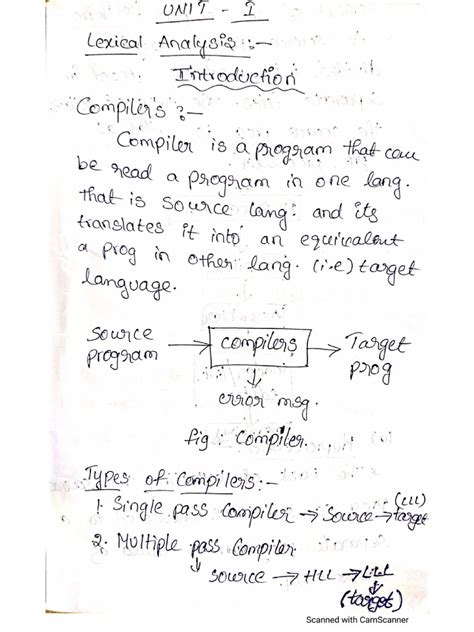 UNIT - I
Lexical Analysis :-
Introduction
Compilers :-
Compiler is a program that can
be read a program in one lang.
that is source lang. and its
translates it into an equivalent
a prog in other lang. (i.e) target
language.
source program → compilers → Target prog
error msg.
fig : Compiler.
Types of Compilers:-
1. Single pass Compiler → Source → target (LLL)
2. Multiple pass Compiler
source → HLL → LLL
(target)
Scanned with CamScanner